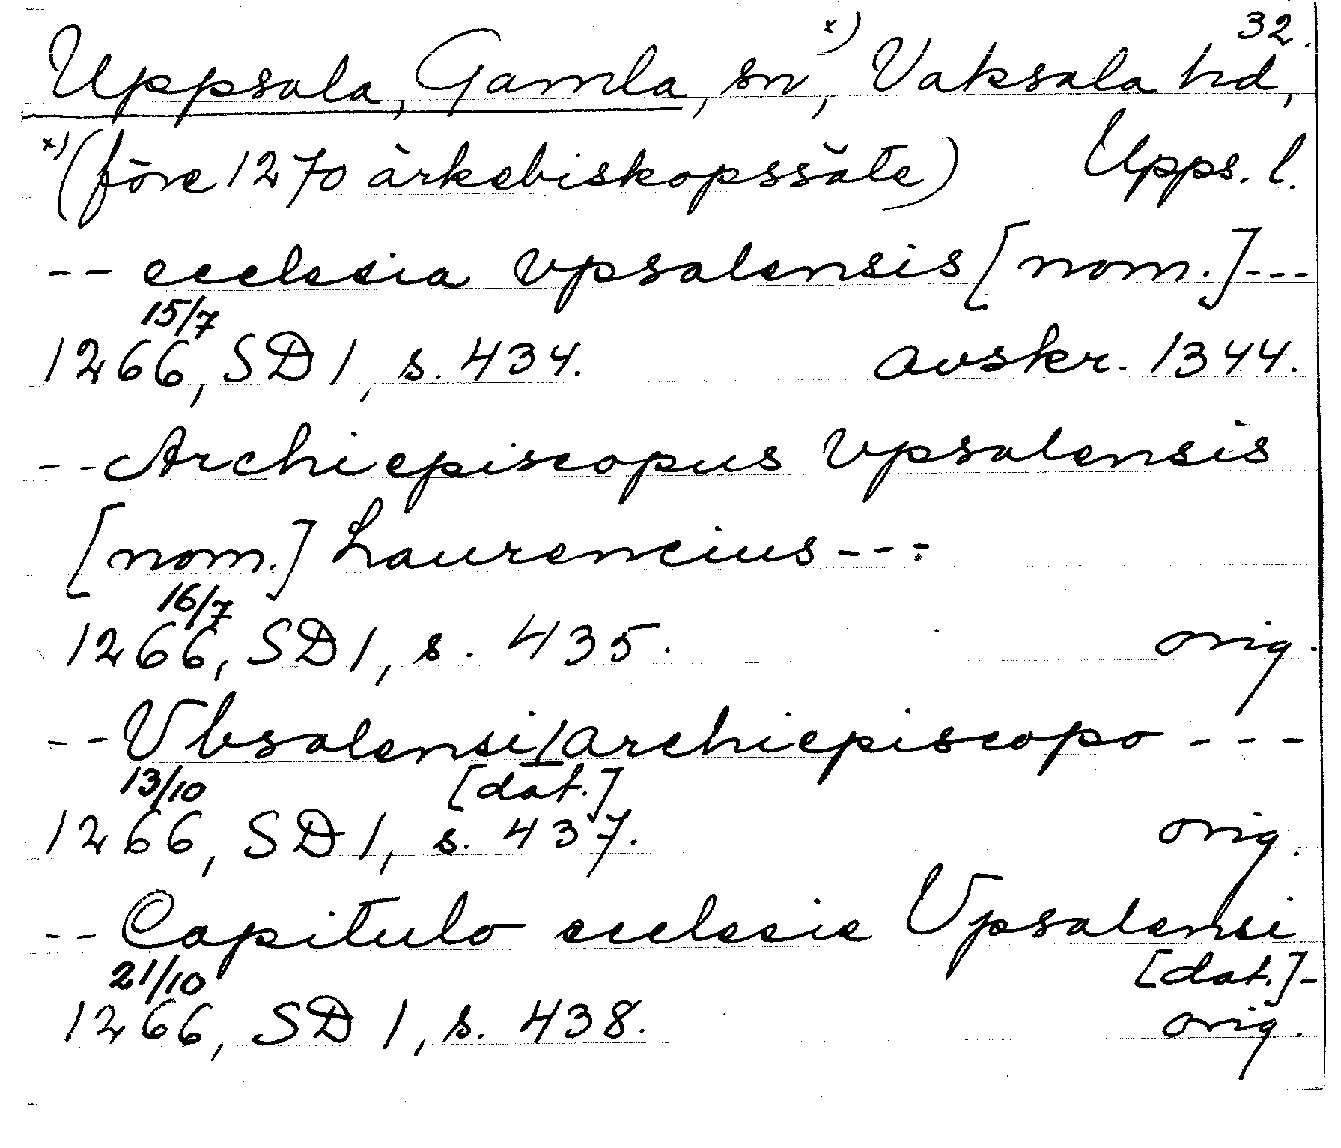 32.
Uppsala, Gamla, sn x), Vaksala hd,
x) (före 1270 ärkebiskopssäte) Upps. l.
-- ecclesia vpsalensis [nom.] ---
15/7
1266, SD 1, s. 434. avskr. 1344.
-- Archiepiscopus Vpsalensis
[nom.] Laurencius --- :
16/7
1266, SD 1, s. 435. orig.
-- Vbsalensi / archiepiscopo ---
13/10 [dat.]
1266, SD 1, s. 437. orig.
-- Capitulo ecclesie Vpsalensi
21/10 [dat.] -
1266, SD 1, s. 438. orig.